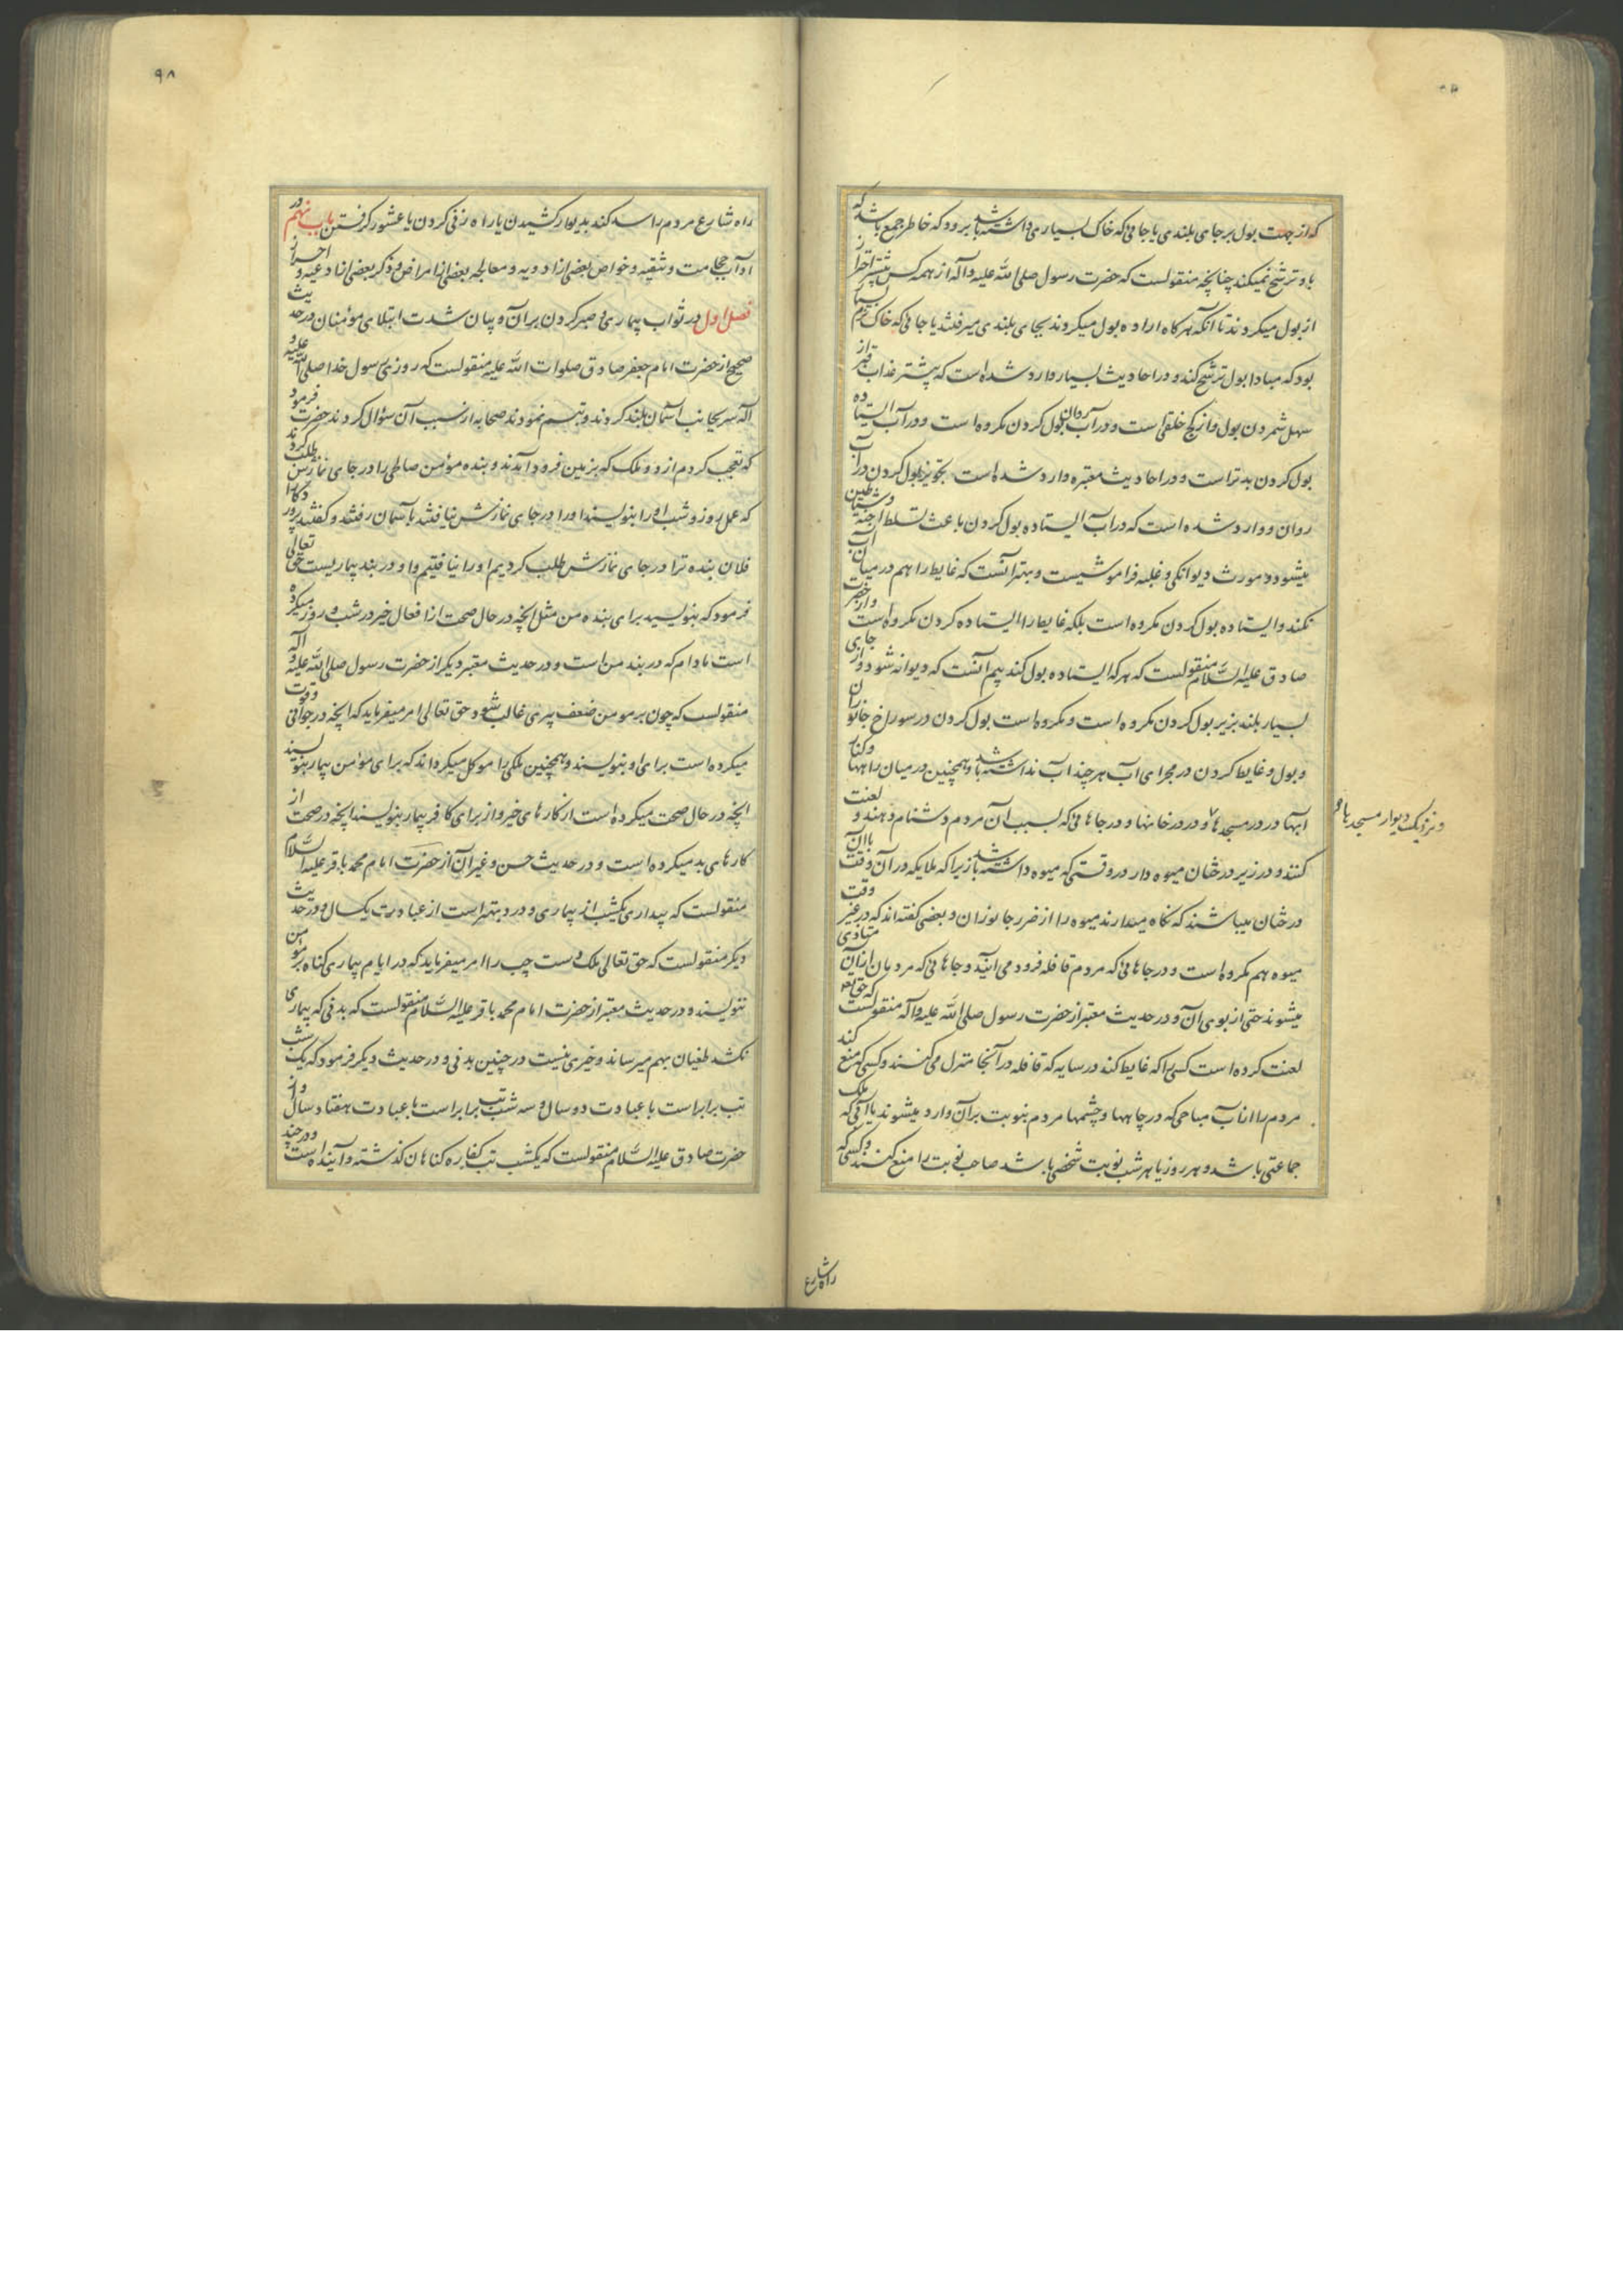 که از جهت بول بر جای بلندی یا جائی که خاک بسیاری داشته باشد برود که خاطر جمع باشد که
باو ترشح نمیکند چنانچه منقولست که حضرت رسول صلی الله علیه و آله از همه کس بیشتر احتراز
از بول میکردند تا آنکه هر کاه اراده بول میکردند بجای بلندی میرفتند یا جائی که خاک نرم بسیار
بود که مبادا بول ترشح کند و در احادیث بسیار وارد شده است که بیشتر عذاب قبر از
سهل شمردن بول و از کج خلقی است و در آب روان بول کردن مکروه است و در آب ایستاده
بول کردن بدتر است و در احادیث معتبره وارد شده است تجویز بول کردن در آب
روان و وارد شده است که در آب ایستاده بول کردن باعث تسلط اجنه و شیاطین
میشود و مورث دیوانکی و غلبه فراموشیست و بهتر آنست که غایط را هم در میان آب
نکنند و ایستاده بول کردن مکروه است بلکه غایط را ایستاده کردن مکروه است و از حضرت
صادق علیه السلام منقولست که هر که ایستاده بول کند بیم آنست که دیوانه شود و از جای
بسیار بلند بزیر بول کردن مکروه است و مکروه است بول کردن در سوراخ جانوران
و بول و غایط کردن در مجرای آب هر چند آب نداشته باشد و همچنین در میان راهها و کنار
آبها و در در مسجدها و در در خانها و در جاهائی که بسبب آن مردم دشنام دهند و لعنت
و نزدیک دیوار مسجد یا
کنند و در زیر درختان میوه دار در وقتی که میوه داشته باشد زیرا که ملایکه در آن وقت با آن
درختان میباشند که نکاه میدارند میوه را از ضرر جانوران و بعضی کفته اند که در غیر وقت
میوه هم مکروه است و در جاهائی که مردم قافله فرود می آیند و جاهائی که مردمان از آن متاذی
میشوند حتی از بوی آن و در حدیث معتبر از حضرت رسول صلی الله علیه و آله منقولست که حقتعالی
لعنت کرده است کسی را که غایط کند در سایه که قافله در آنجا منزل می کنند و کسی که منع کند
مردم را از آب مباحی که در چاهها و چشمها مردم بنوبت بر آن وارد میشوند یا آبی که ملک
جماعتی باشد و هر روز یا هر شب نوبت شخصی باشد صاحب نوبت را منع کنند و کسی که
راه شارع
۹۸
راه شارع مردم را سد کند بدیوار کشیدن یا راه زنی کردن یا عشور کرفتن باب نهم در
آداب حجامت و تنقیه و خواص بعضی از ادویه و معالجه بعضی از امراض و ذکر بعضی از ادعیه و احراز
فصل اول در ثواب بیماری و صبر کردن بر آن و بیان شدت ابتلای مومنان در حدیث
صحیح از حضرت امام جعفر صادق صلوات الله علیه منقولست که روزی رسول خدا صلی الله علیه و
آله سر بجانب آسمان بلند کردند و تبسم نمودند صحابه از سبب آن سؤال کردند حضرت فرمود
که تعجب کردم از دو ملک که بزمین فرود آمدند و بنده مؤمن صالحی را در جای نمازش طلب کردند
که عمل روز و شب او را بنویسند او را در جای نمازش نیافتند بآسمان رفتند و کفتند پروردکارا
فلان بنده ترا در جای نمازش طلب کردیم او را نیافتیم و او در بند بیماریست حق تعالی
فرمود که بنویسید برای بنده من مثل آنچه در حال صحت از افعال خیر در شب و روز میکرده
است مادام که در بند من است و در حدیث معتبر دیکر از حضرت رسول صلی الله علیه و آله
منقولست که چون بر مومن ضعف پیری غالب شود حق تعالی امر میفرماید که آنچه در جوانی و قوت
میکرده است برای او بنویسند و همچنین ملکی را موکل میکرداند که برای مؤمن بیمار بنویسند
آنچه در حال صحت میکرده است از کارهای خیر و از برای کافر بیمار بنویسند آنچه در صحت از
کارهای بد میکرده است و در حدیث حسن و غیر آن از حضرت امام محمد باقر علیه السلام
منقولست که بیداری یکشب از بیماری و درد بهتر است از عبادت یکسال و در حدیث
دیکر منقولست که حق تعالی ملک دست چپ را امر میفرماید که در ایام بیماری کناه بر مؤمن
ننویسند و در حدیث معتبر از حضرت امام محمد باقر علیه السلام منقولست که بدنی که بیماری
نکشد طغیان بهم میرساند و خیری نیست در چنین بدنی و در حدیث دیکر فرمود که یک شب
تب برابر است با عبادت دو سال و سه شب تب برابر است با عبادت هفتاد سال و از
حضرت صادق علیه السلام منقولست که یکشب تب کفاره کناهان کذشته و آینده است و در چند